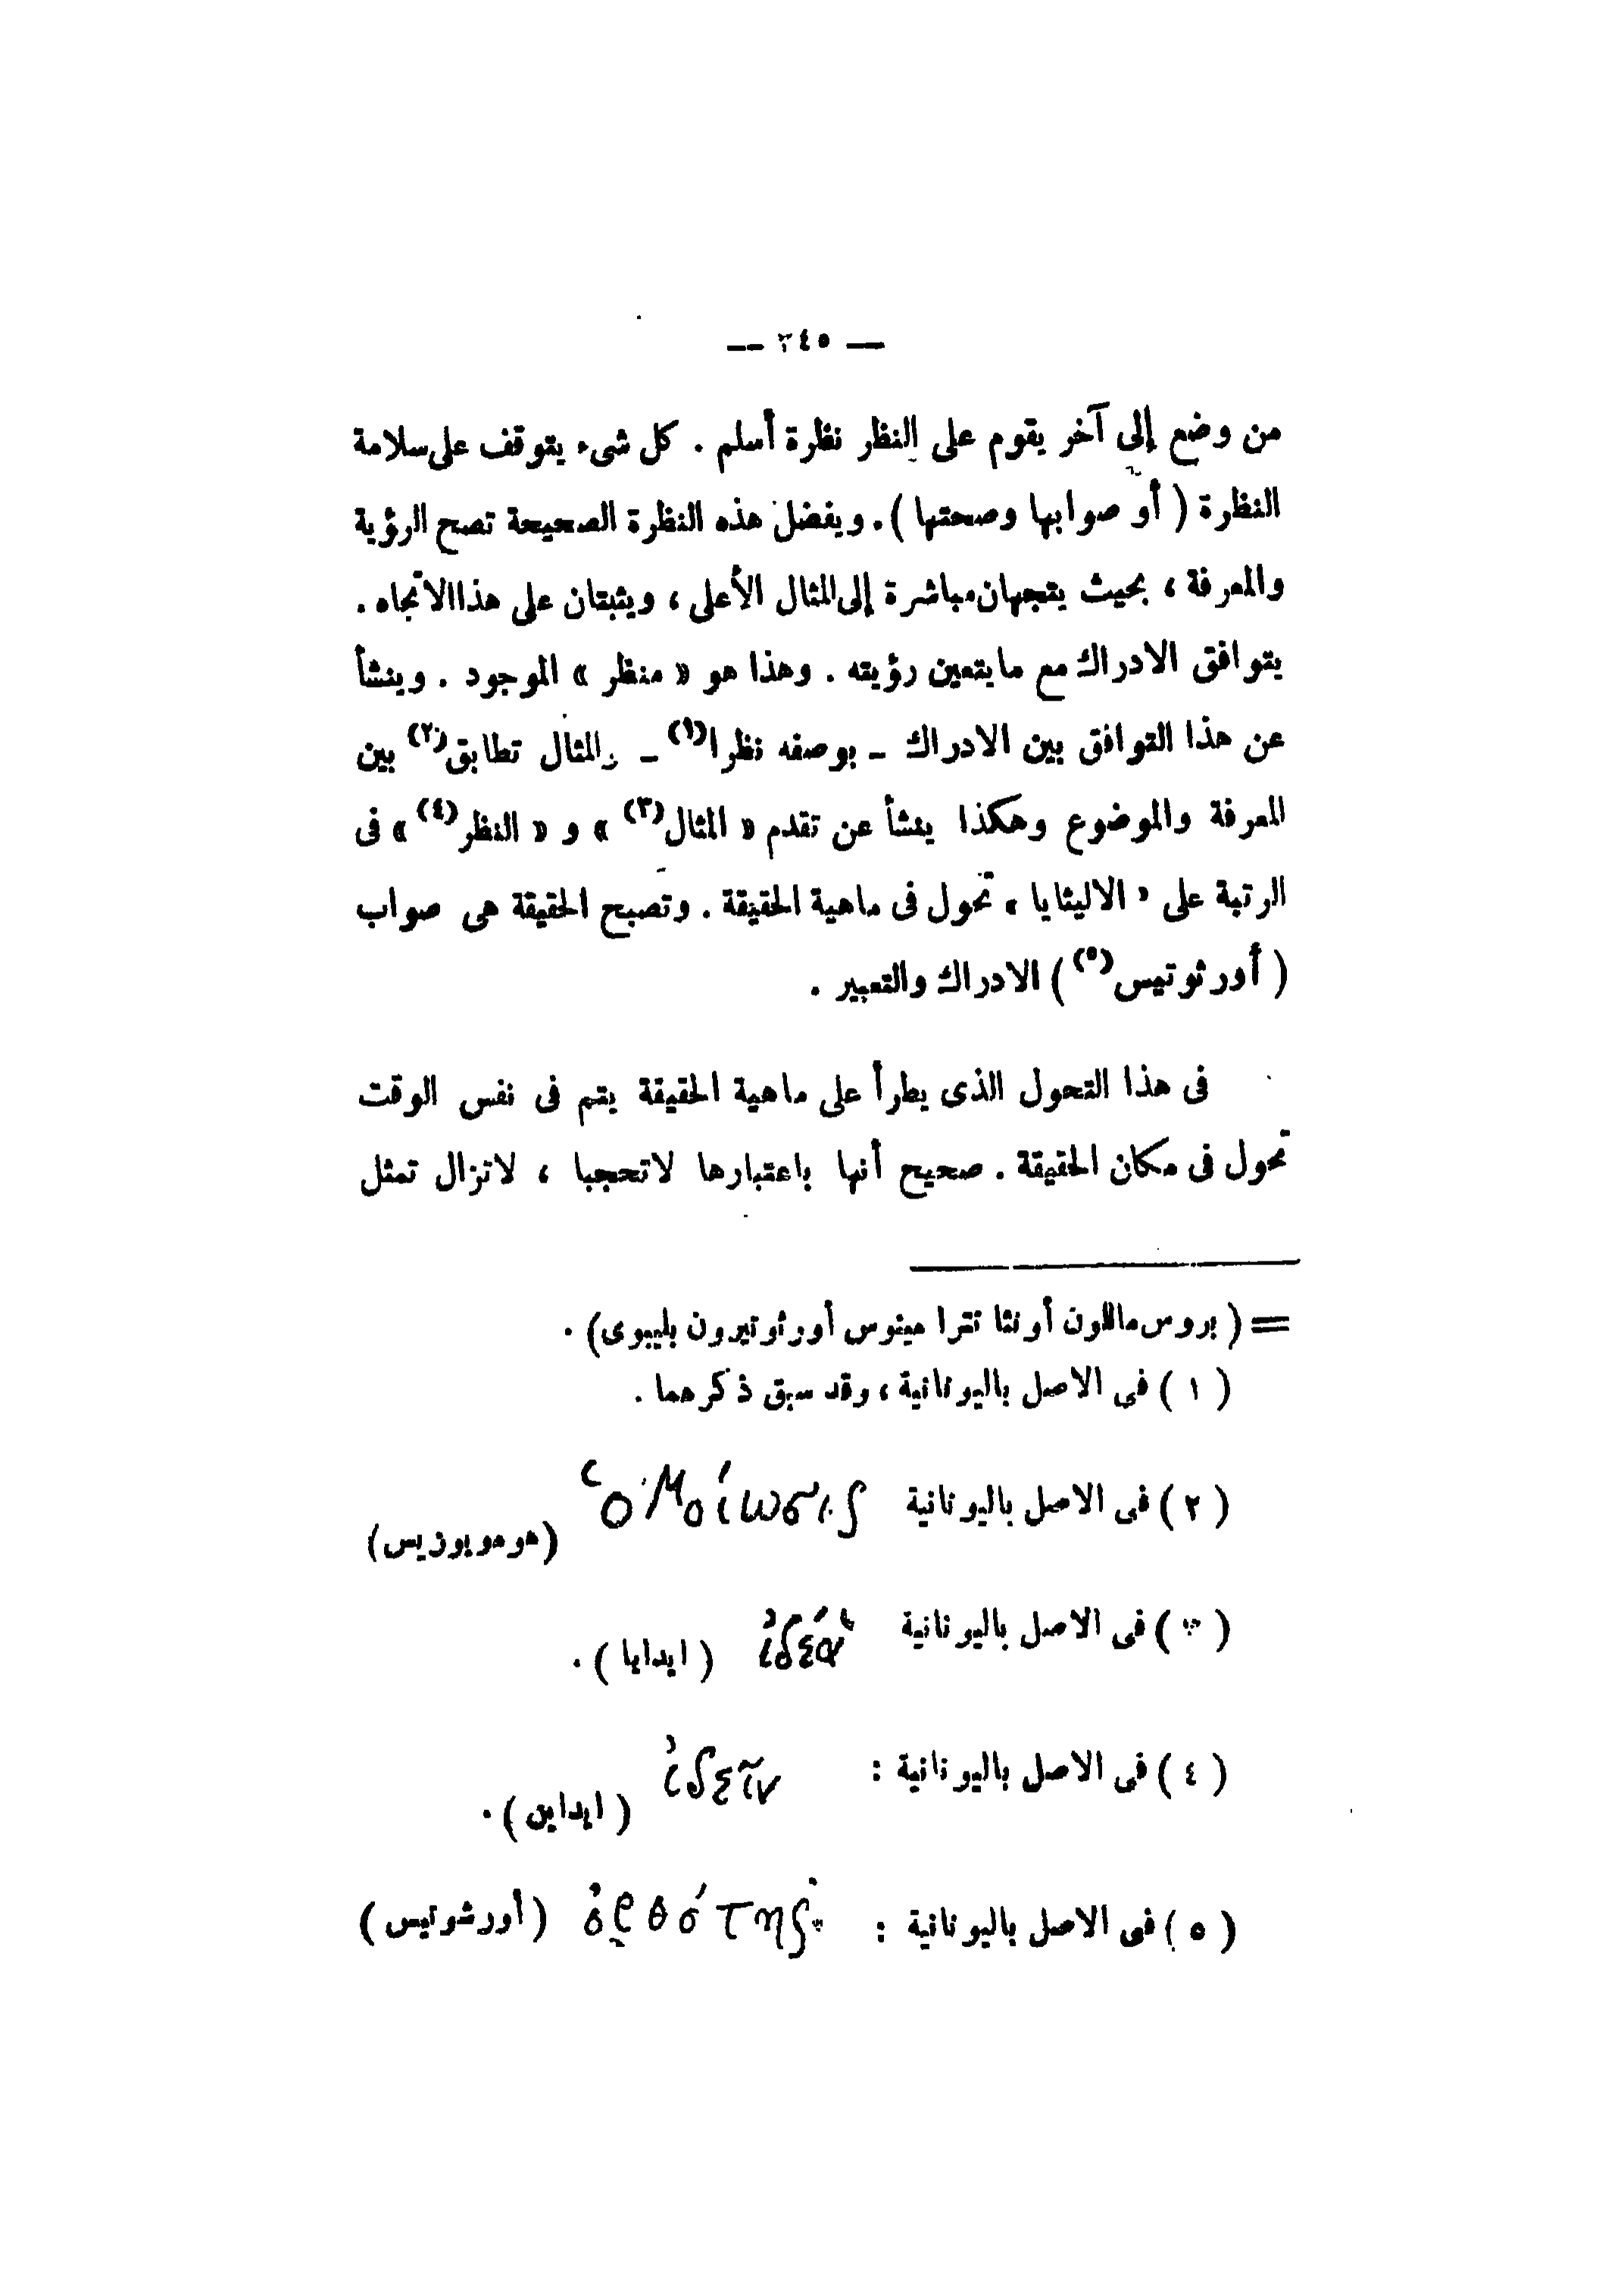 — ٣٤٥ —
من وضع إلى آخر يقوم على النظر نظرة أسلم . كل شىء يتوقف على سلامة
النظرة ( أو صوابها وصحتها ) . وبفضل هذه النظرة الصحيحة تصح الرؤية
والمعرفة ، بحيث يتجهان مباشرة إلى المثال الأعلى ، ويثبتان على هذا الاتجاه .
يتوافق الادراك مع ما يتعين رؤيته . وهذا هو « منظر » الموجود . وينشأ
عن هذا التوافق بين الادراك ـ بوصفه نظرا(١) ـ والمثال تطابق(٢) بين
المعرفة والموضوع وهكذا ينشأ عن تقدم « المثال(٣) » و « النظر(٤) » فى
الرتبة على « الاليثايا » تحول فى ماهية الحقيقة . وتصبح الحقيقة هى صواب
( أورثوتيس(٥) ) الادراك والتعبير .
فى هذا التحول الذى يطرأ على ماهية الحقيقة يتم فى نفس الوقت
تحول فى مكان الحقيقة . صحيح أنها باعتبارها لاتحجبا ، لاتزال تمثل
= ( بروس ماللون أونثا تترا مينوس أورثوتيرون بليبوى ) .
( ١ ) فى الاصل باليونانية ، وقد سبق ذكرهما .
( ٢ ) فى الاصل باليونانية ὁμοίωσις (هوموبوزيس)
( ٣ ) فى الاصل باليونانية ἰδέα ( ايدايا ) .
( ٤ ) فى الاصل باليونانية : ἰδεῖν ( ايداين ) .
( ٥ ) فى الاصل باليونانية : ὀρθότης ( أورثوتيس )